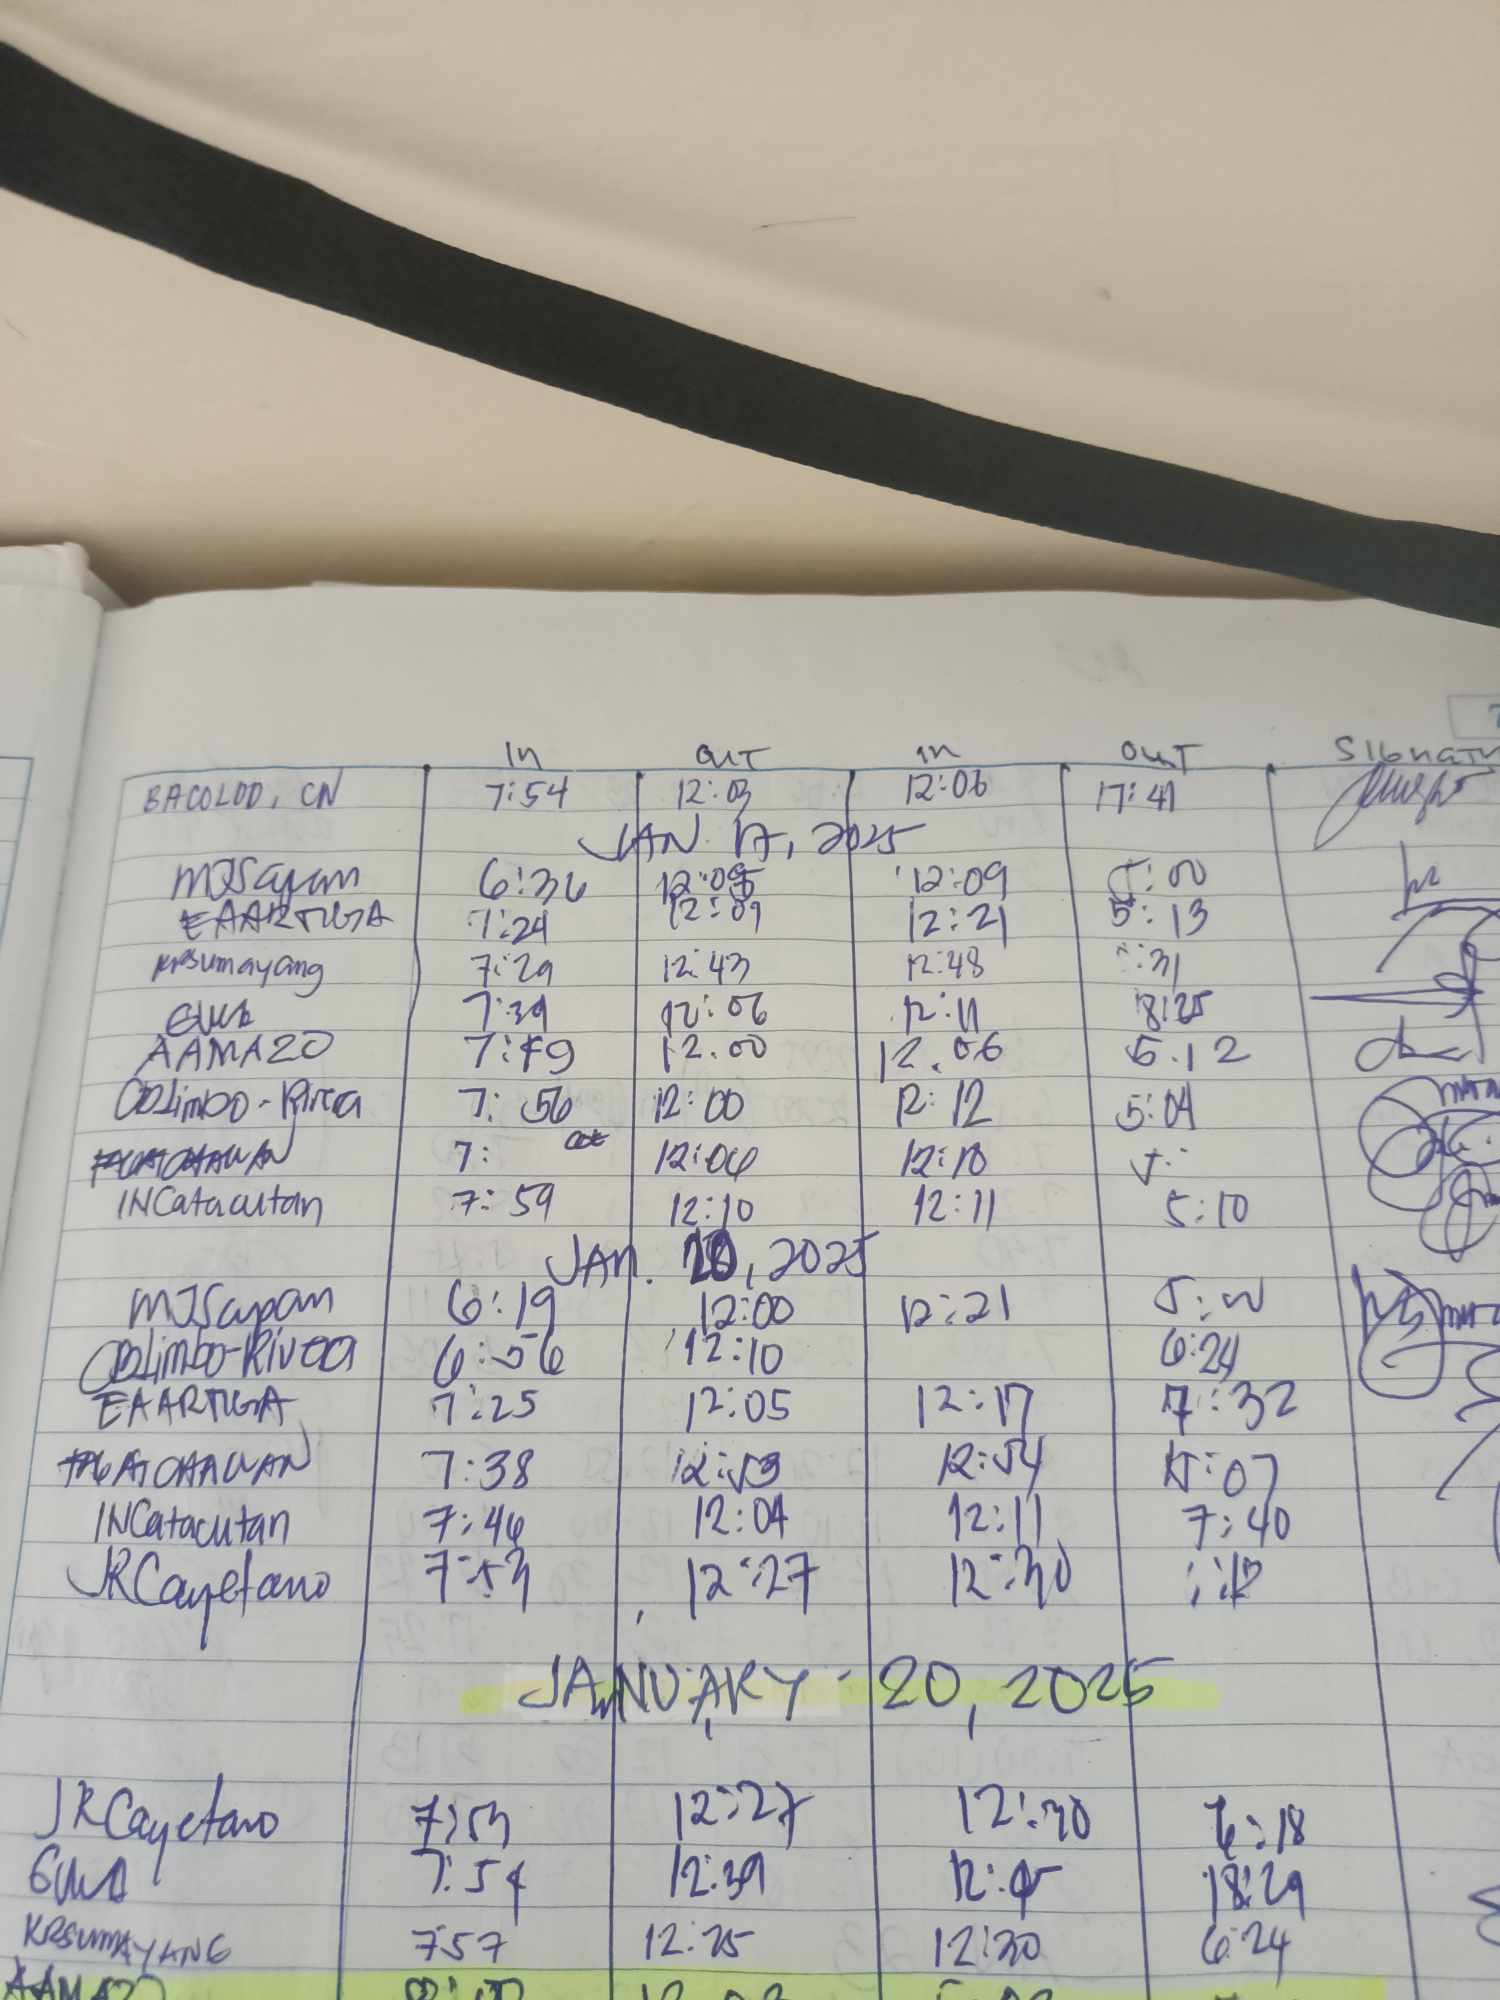 In OUT In OUT
BACOLOD, CN 7:54 12:03 12:06 17:41
JAN 17, 2025
MJSapan 6:36 12:09 5:00
EAARTIGA 7:24 12:09 12:21 5:13
KRSumayang 7:29 12:43 12:48 :31
7:39 12:06 12:11 18:25
AAMAZO 7:49 12.00 12.06 5.12
CDLimbo-Rivera 7:56 12:00 12:12 5:04
7: 12:06 12:10 5:
INCatacutan 7:59 12:10 12:11 5:10
JAN. 20, 2025
MJSapan 6:19 12:00 12:21 5:00
CDLimbo-Rivera 6:56 12:10 6:24
EAARTIGA 7:25 12:05 12:17 7:32
7:38 12:53 12:54 5:07
INCatacutan 7:46 12:04 12:11 7:40
JRCayetano 7:53 12:27 12:30
JANUARY 20, 2025
JRCayetano 7:53 12:27 12:30 6:18
7:54 12:39 12:45 18:29
KRSUMAYANG 7:57 12:25 12:30 6:24
AAMAZO